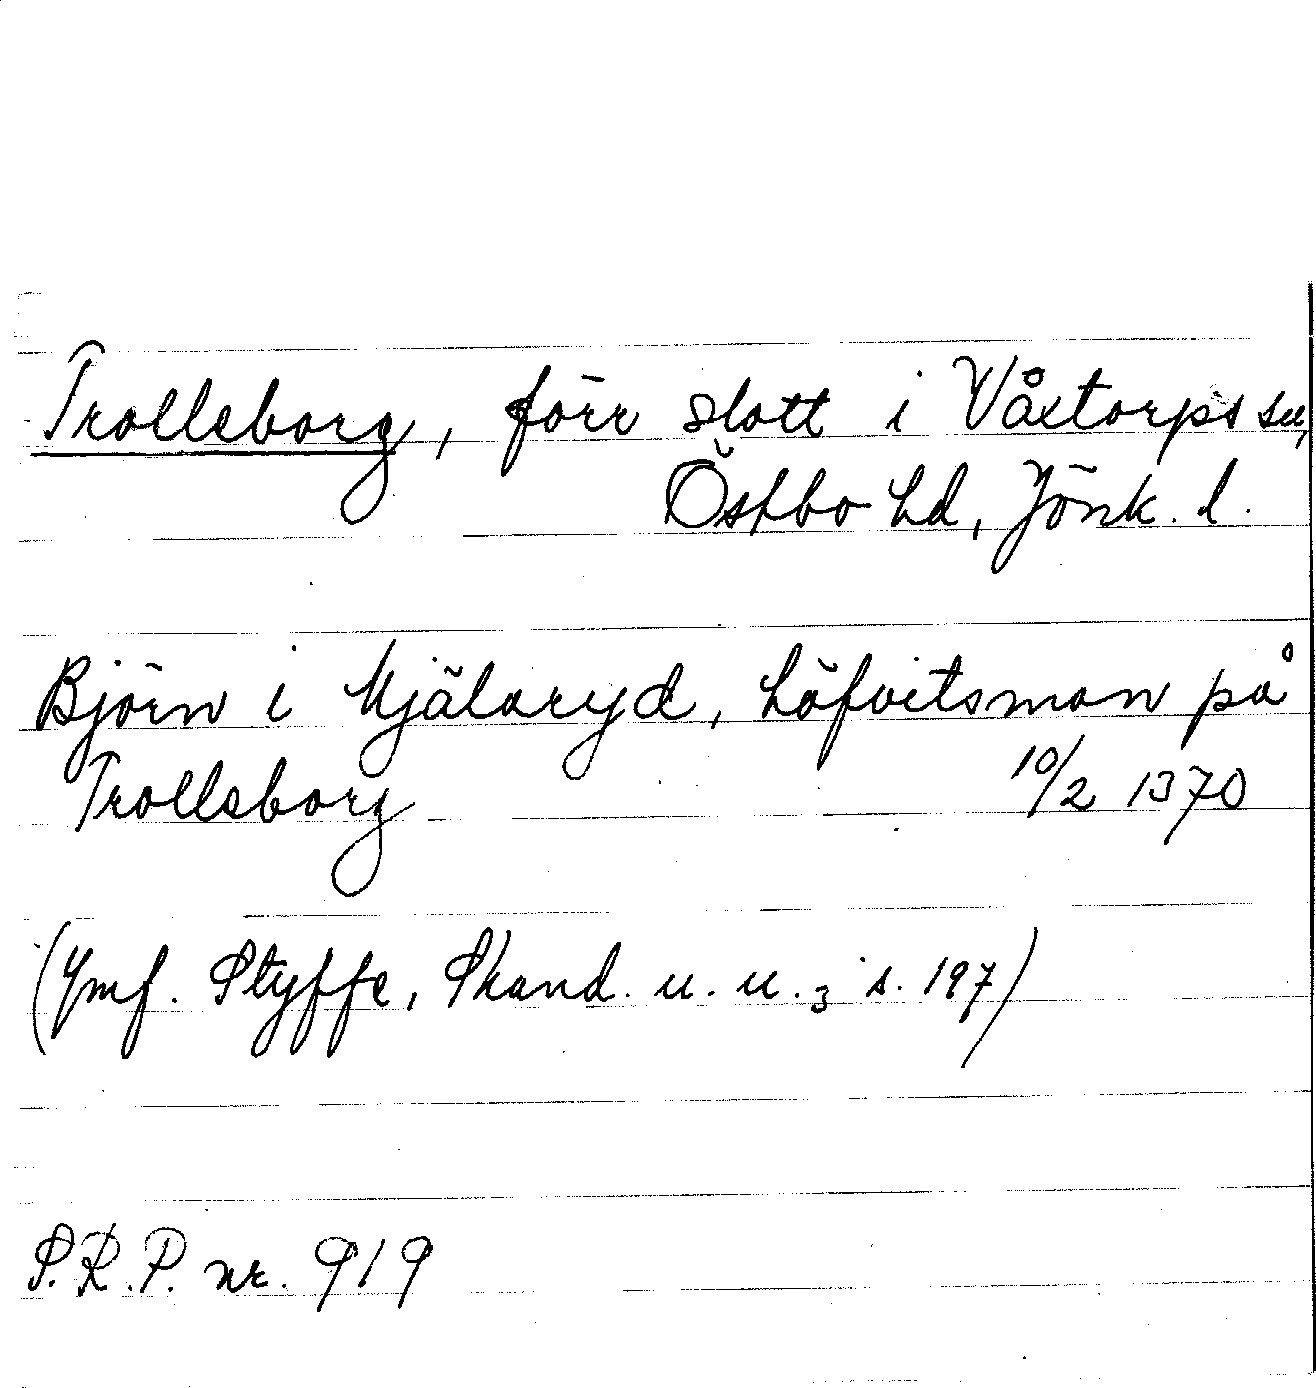 Trolleborg, förr slott i Våxtorps sn,
Östbo hd, Jönk. l.
Björn i Mjälaryd, häfvitsman på
Trollsborg 10/2 1370
(Jmf. Styffe, Skand. u. u. 3 s. 197)
S.R.P. nr. 919